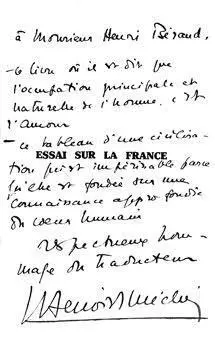 à Monsieur Henri Béraud,
– ce livre où il est dit que
l'occupation principale et
naturelle de l'homme, c'est
l'Amour
– ce tableau d'une civilisa-
ESSAI SUR LA FRANCE
tion qui est impérissable parce
qu'elle est fondée sur une
connaissance approfondie
du cœur humain
respectueux hom-
mage du traducteur
Benoist-Méchin